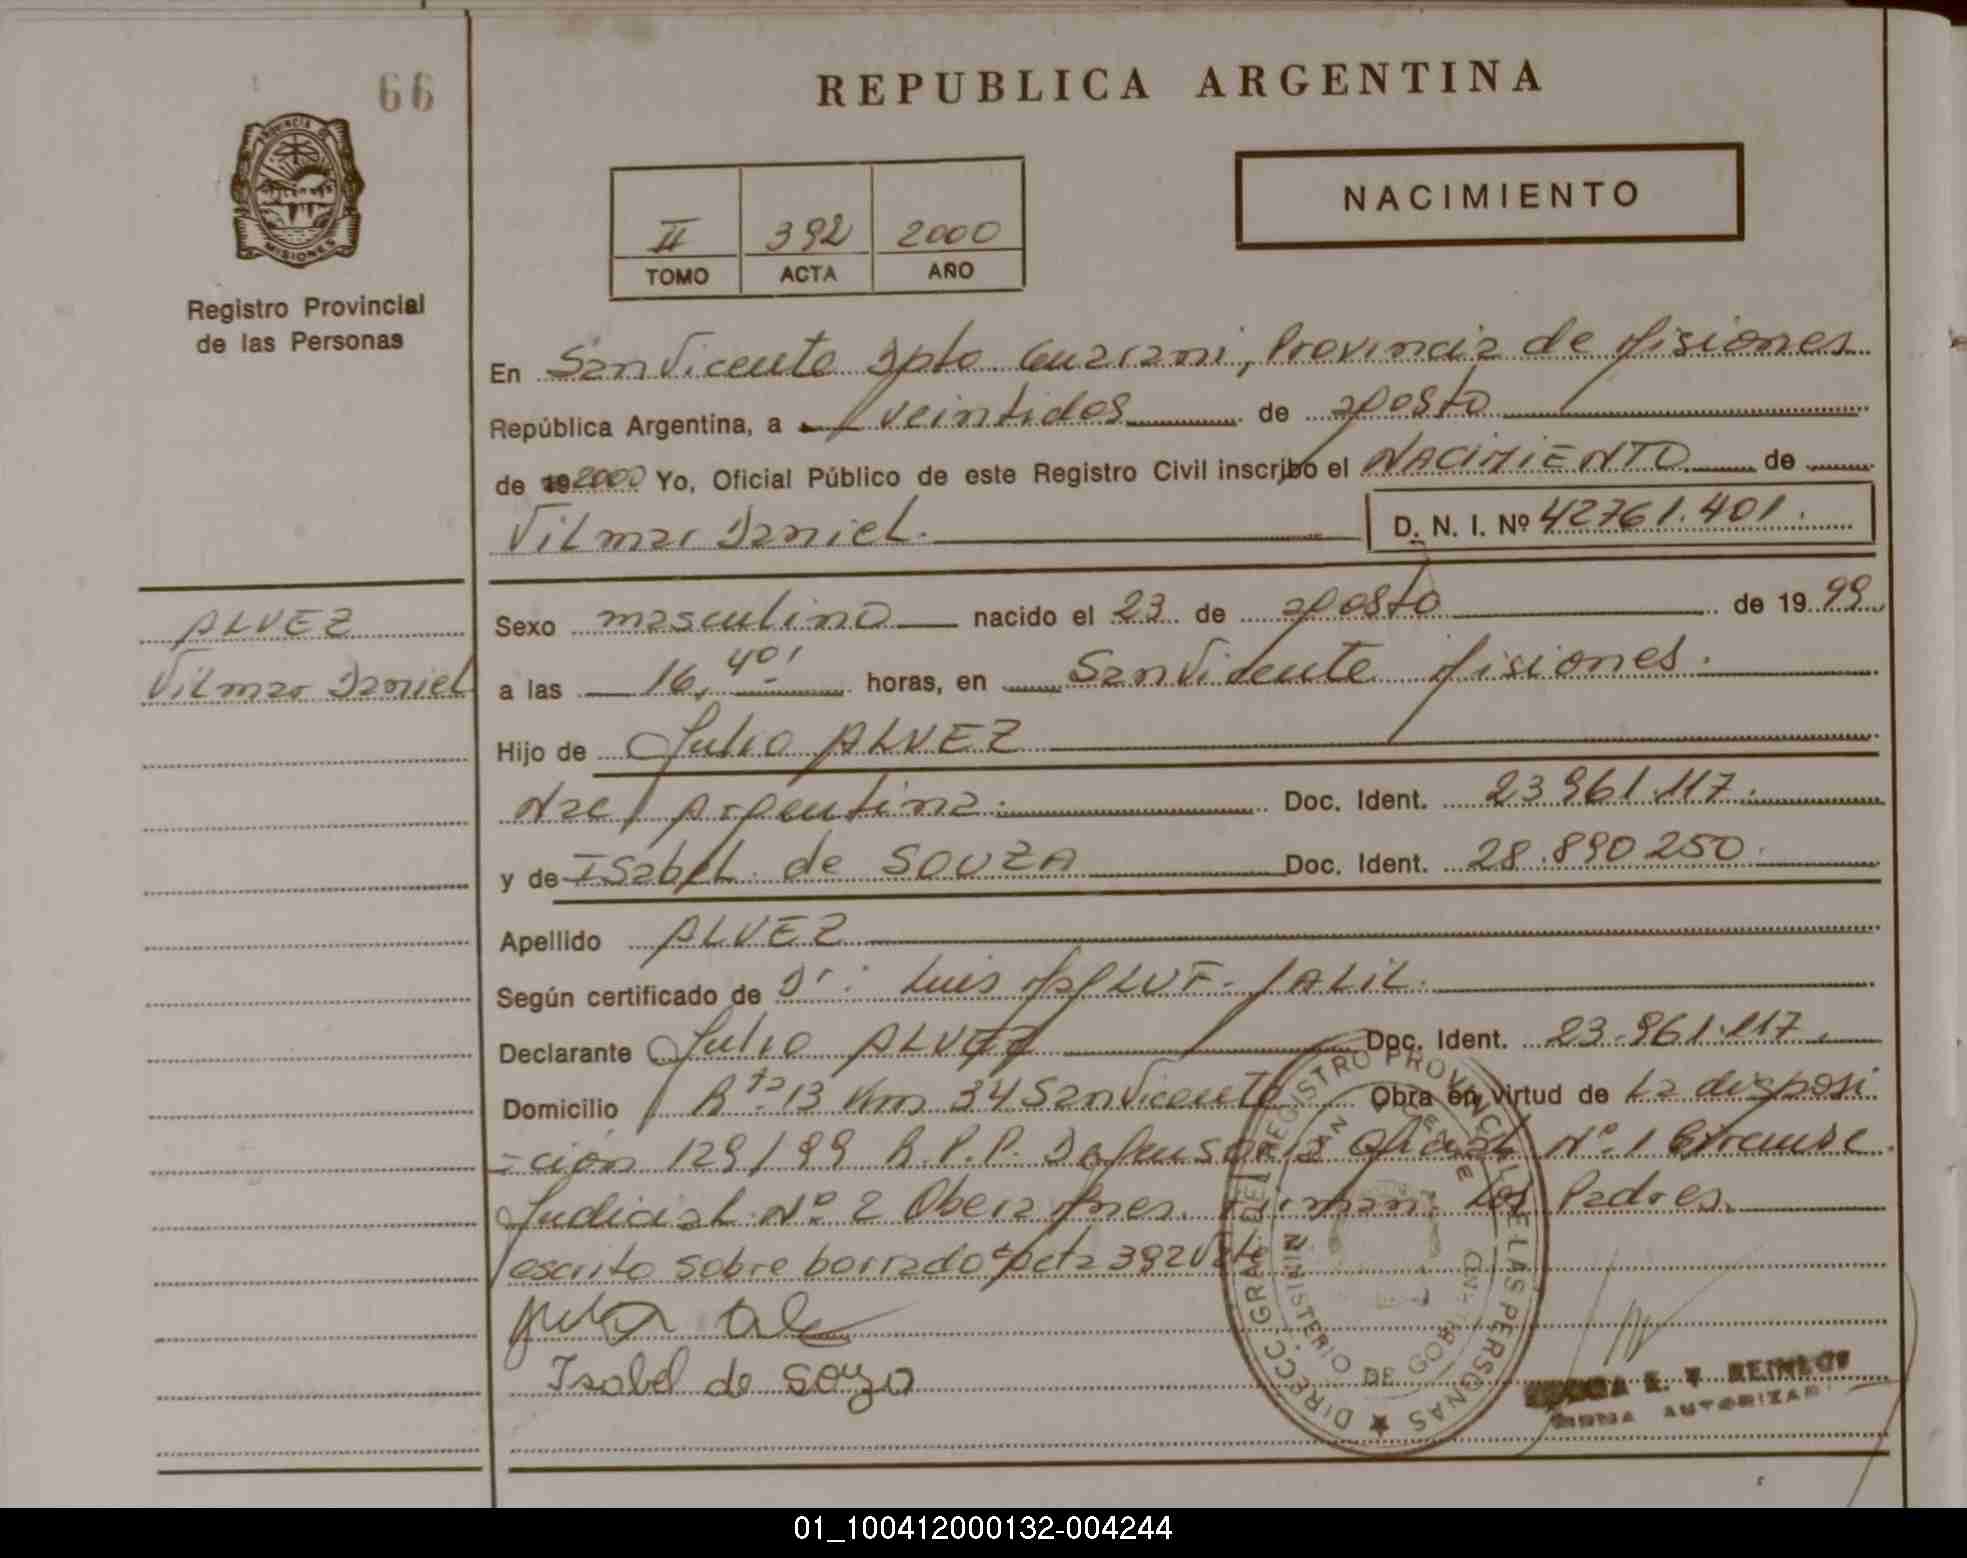 66
REPUBLICA ARGENTINA
PROVINCIA DE
MISIONES
Registro Provincial
de las Personas
NACIMIENTO
II 392 2000
TOMO ACTA AÑO
En San Vicente Dpto Guarani, Provincia de Misiones
República Argentina, a veintidos de agosto
de 19 2000 Yo, Oficial Público de este Registro Civil inscribo el NACIMIENTO de
Vilmar Daniel. D. N. I. Nº 42761.401.
ALVEZ
Vilmar Daniel
Sexo masculino nacido el 23 de agosto de 19 99
a las 16,40' horas, en San Vicente Misiones.
Hijo de Julio ALVEZ
Nac/ Argentina. Doc. Ident. 23961.117.
y de ISabel de SOUZA Doc. Ident. 28.890250.
Apellido ALVEZ
Según certificado de Dr. Luis JALIL.
Declarante Julio ALVEZ Doc. Ident. 23.961.117.
Domicilio Rta 13 Km 34 San Vicente Obra en virtud de La disposi
-ción 129/99 R.P.P. Defensoria Oficial Nº 1 Circunsc.
Judicial Nº 2 Obera Mnes. Firman: Los Padres.
escrito sobre borrado: acta 392 Vale
Isabel de soza
DIRECC. GRAL. DEL REGISTRO PROVINCIAL DE LAS PERSONAS
SAN VICENTE
MINISTERIO DE GOBIERNO
E. V. REINLOV
FIRMA AUTORIZADA
01_100412000132-004244